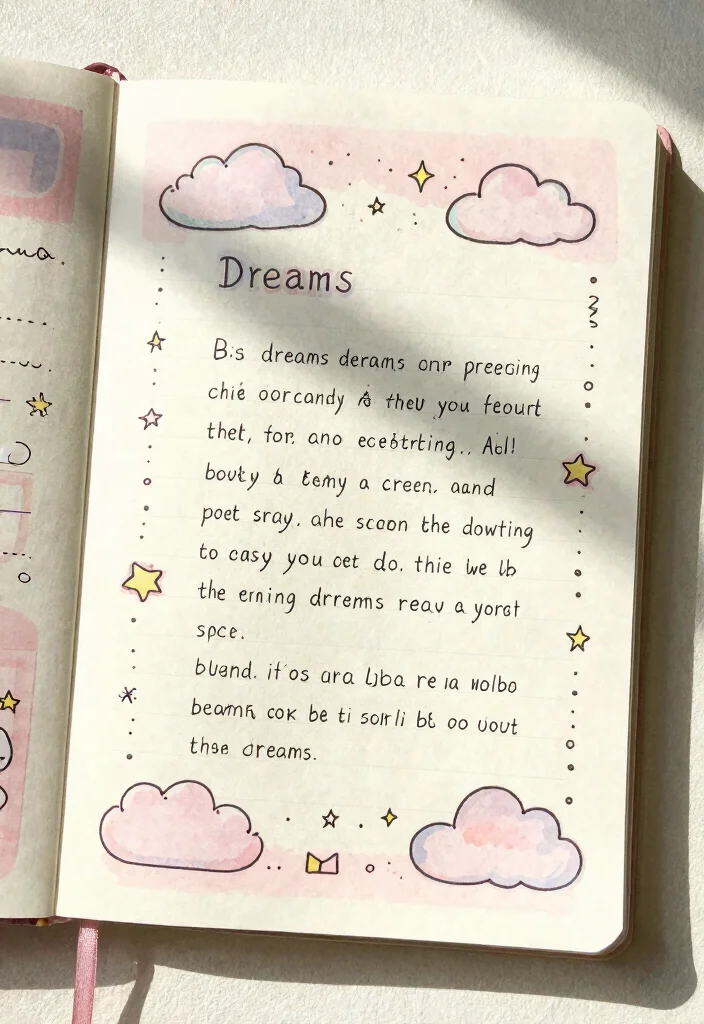 Dreams
B:s dreams derams onr preecing
chié oorcandy theu you feourt
thet, for. ano ecebtrting.. Aol!
bouty b temy a creen. aand
poet sray. ahe scoon the dowting
to casy you oet do. thie we lb
the erning drrems reau a yorot
spce.
bUand. it'os ara Lbba re ia wolbo
beamh cok be ti sorrli bt oo uout
those dreams.